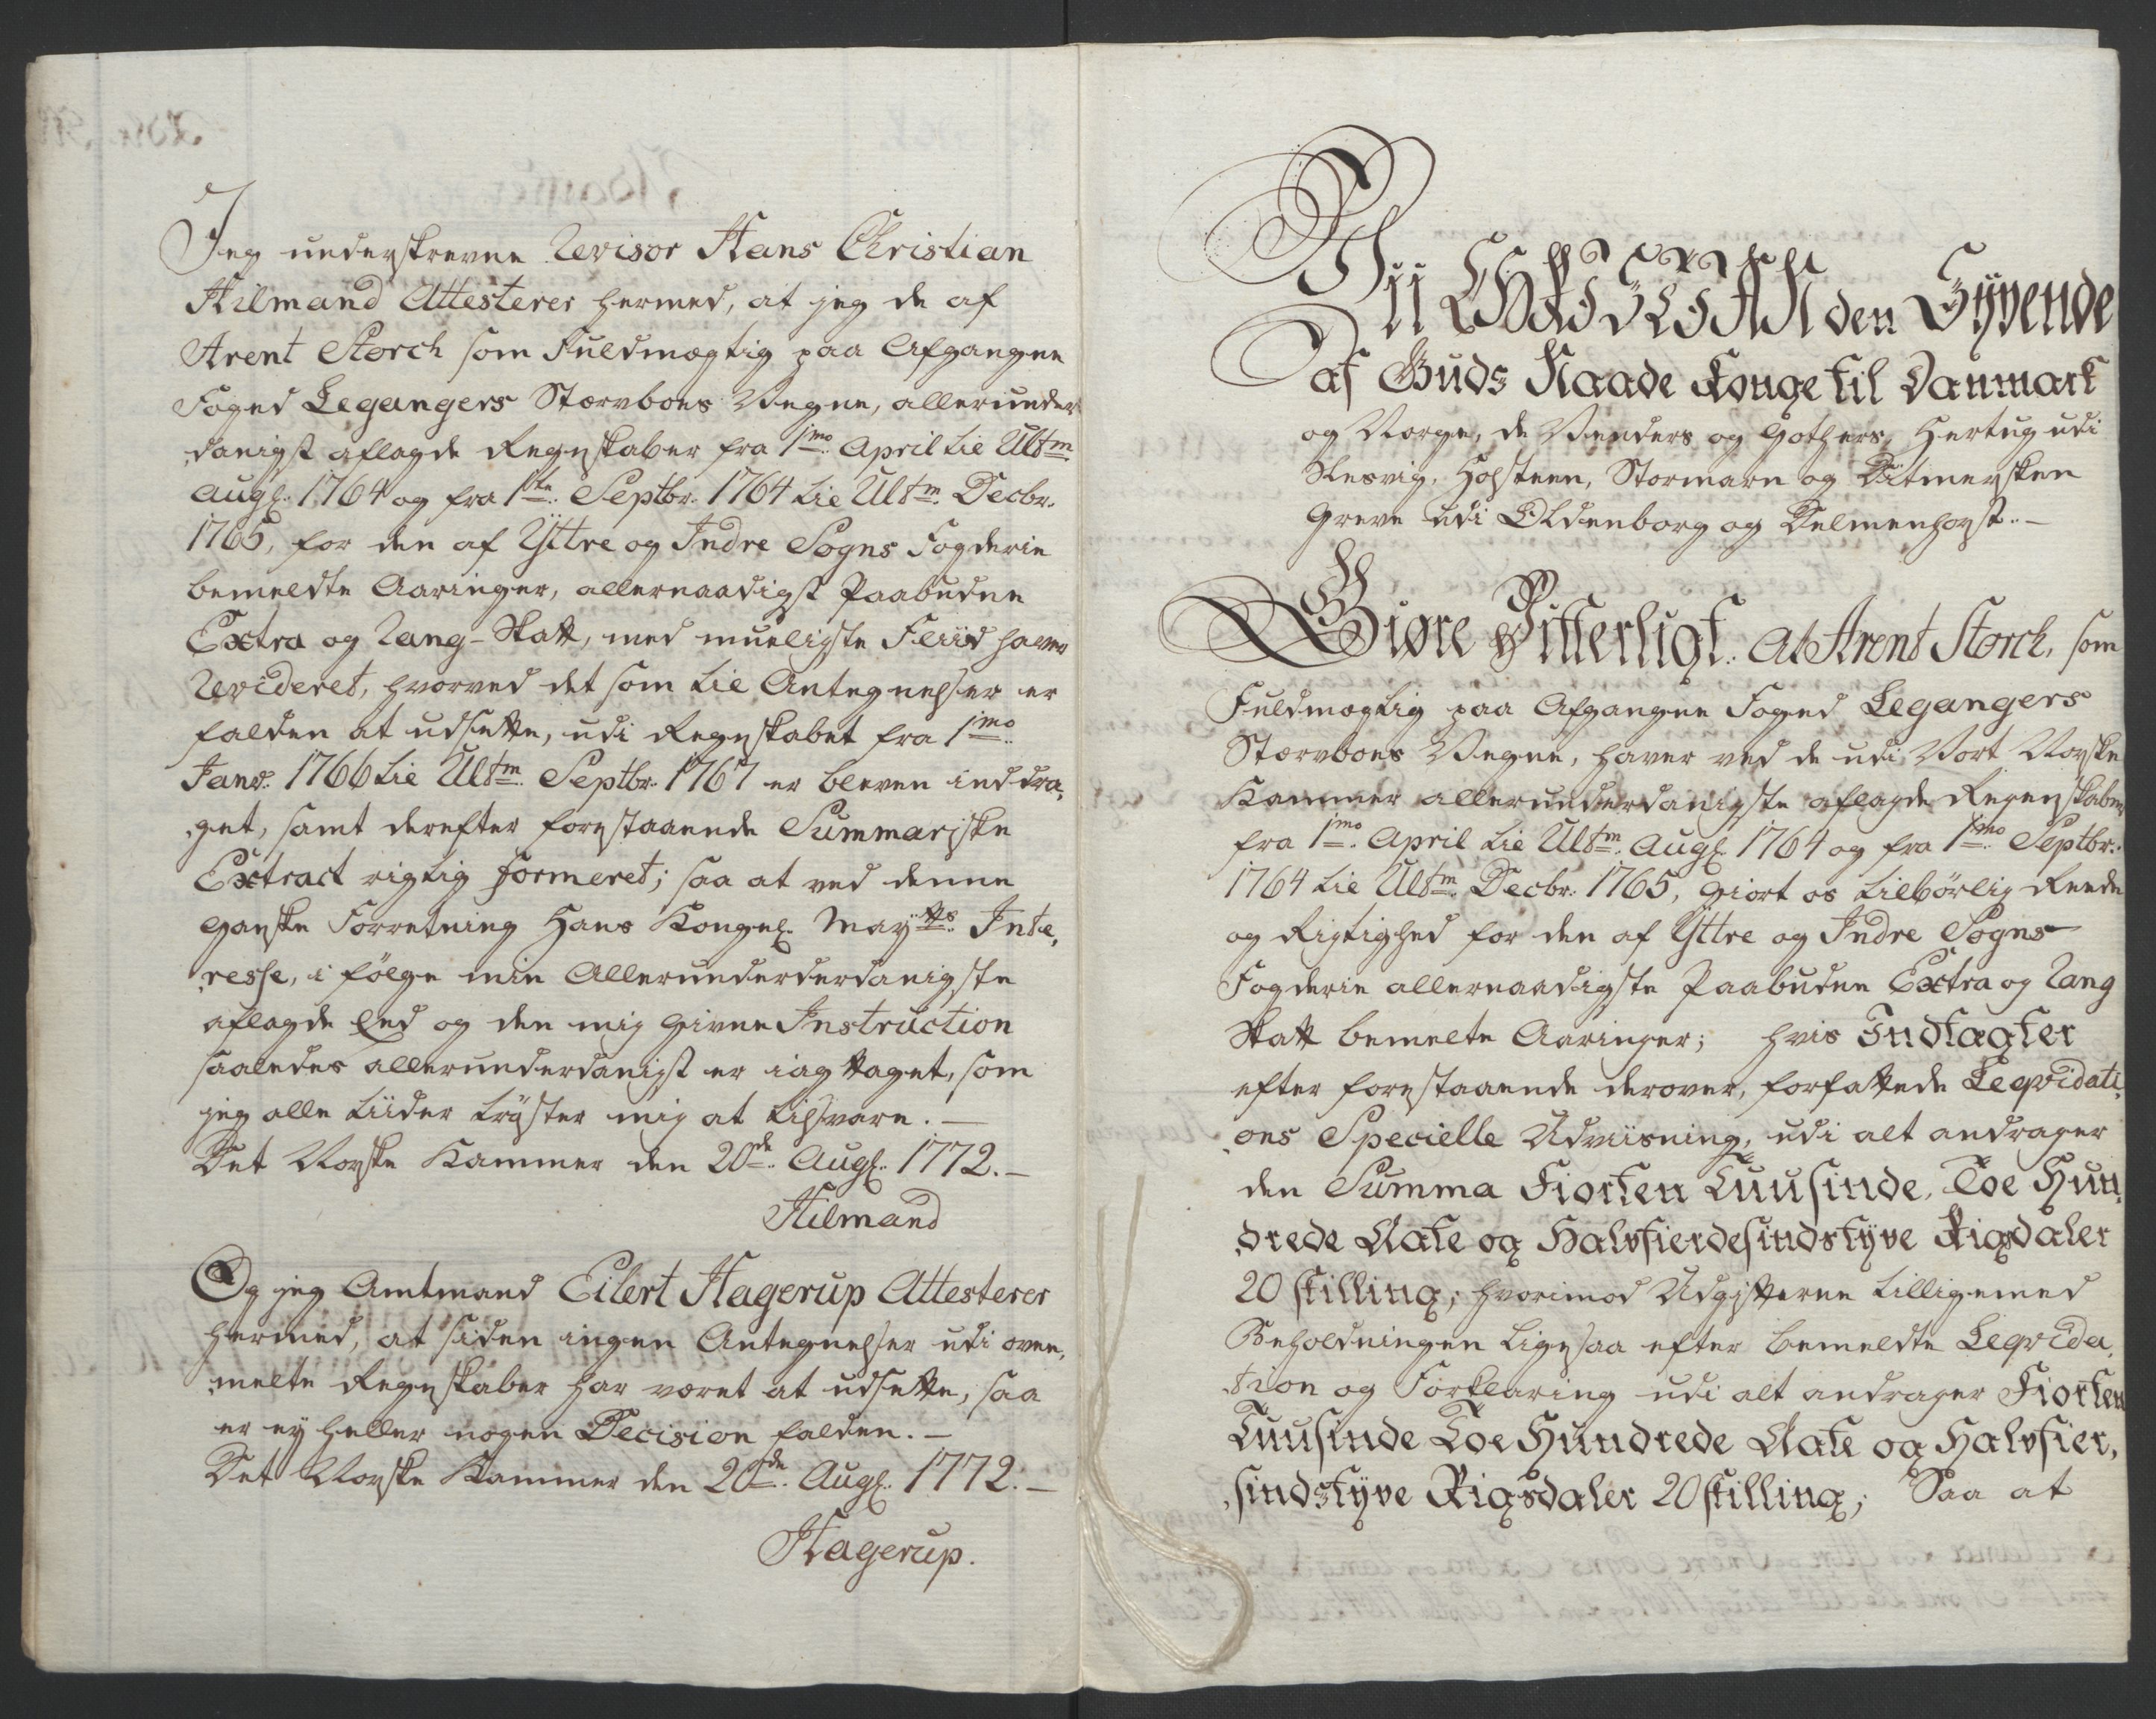 Jeg underskrevne Revisor Hans Christian
Hilmand Attesterer hermed, at jeg de af
Arent Storch som Fuldmægtig paa Afgangne
Foged Legangers Stærvboes Vegne, allerunder
danigst aflagde Regnskaber fra 1mo. April til Ultm.
Augs. 1764 og fra 1ste. Septbr. 1764 til Ultm. Decbr.
1765, for den af Ÿttre og Indre Sogns Fogderie
bemeldte Aaringer, allernaadigst Paabudne
Extra og Rang-Skatt, med mueligste Fliid haver
Revideret, hvorved det som til Antegnelser er
falden at udsette, udi Regnskabet fra 1mo.
Janv. 1766 til Ultm. Septbr. 1767 er bleven inddra,
,get, samt derefter forestaaende Summariske
Extract rigtig formeret; saa at ved denne
ganske Forretning Hans Kongel. Mayts. Inte,
,resse, i følge min Allerunderderdanigste
aflagde Eed og den mig givne Instruction
saaledes allerunderdanigst er iagttaget, som
jeg alle tiider trøster mig at tilsvare. —
Det Norske Kammer den 20de. Augs. 1772. —
Hilmand
Og jeg Amtmand Eilert Hagerup Attesterer
hermed, at siden ingen Antegnelser udi oven,
,melte Regnskaber har været at udsette, saa
er ey heller nogen Decision falden. —
Det Norske Kammer den 20de. Augs. 1772. —
Hagerup.
Vii CHRISTIAN den Syvende
af Guds Naade Konge til Danmark
og Norge, de Venders og Gothers, Hertug udi
Slesvig, Holsteen, Stormarn og Ditmersken
Greve udi Oldenborg og Delmenhorst. —
Giøre Vitterligt. At Arent Storch, som
Fuldmægtig paa Afgangne Foged Legangers
Stærvboes Vegne, haver ved de udi Vort Norske
Kammer allerunderdanigste aflagde Regenskaber
fra 1mo. April til Ultm. Augs. 1764 og fra 1mo. Septbr.
1764 til Ultm. Decbr. 1765, giort os tilbørlig Reede
og Rigtighed for den af Ÿttre og Indre Sogns
Fogderie allernaadigste Paabudne Extra og Rang
Skatt bemelte Aaringer; hvis Indtægter
efter forestaaende derover, forfattede Leqvidati,
,ons Specielle Udviisning, udi alt andrager
den Summa Fiorten Tuusinde, Toe Hun,
,drede Aate og Halvfierdesindstyve Rigsdaler
20 skilling; hvorimod Udgifterne tilligemed
Beholdningen ligesaa efter bemeldte Leqvida,
,tion og Forklaring udi alt andrager Fiorten
Tuusinde Toe Hundrede Aate og Halvfier,
,sindstyve Rigsdaler 20 skilling; Saa at